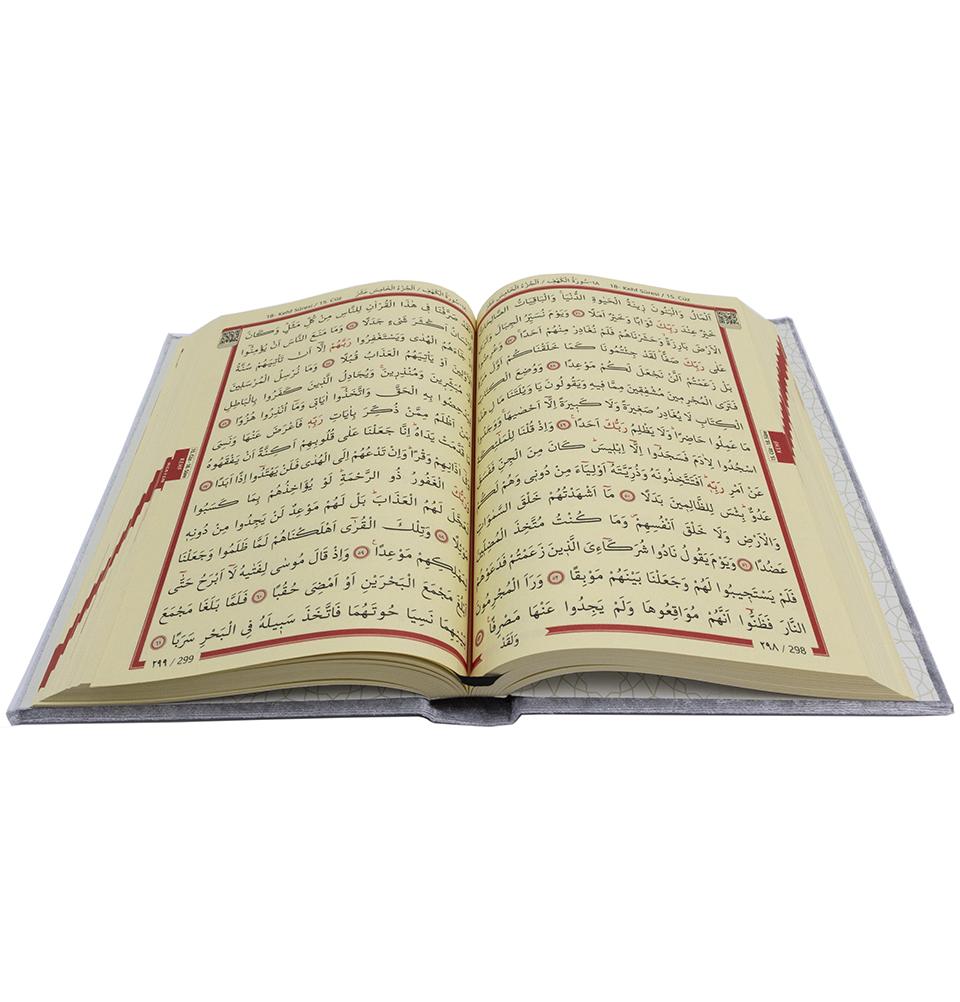 18- Kehf Sûresi / 15. Cüz ١٨-سُورَةُ الْكَهْفِ / اَلْجُزْءُ الْخَامِسَ عَشَرَ
اَلْمَالُ وَالْبَنُونَ زٖينَةُ الْحَيٰوةِ الدُّنْيَاۚ وَالْبَاقِيَاتُ
خَيْرٌ عِنْدَ رَبِّكَ ثَوَاباً وَخَيْرٌ اَمَلاً ﴿٤٦﴾ وَيَوْمَ نُسَيِّرُ الْجِبَالَ
الْاَرْضَ بَارِزَةًۙ وَحَشَرْنَاهُمْ فَلَمْ نُغَادِرْ مِنْهُمْ اَحَداًۚ ﴿٤٧﴾
عَلٰى رَبِّكَ صَفاًّۜ لَقَدْ جِئْتُمُونَا كَمَا خَلَقْنَاكُمْ
بَلْ زَعَمْتُمْ اَلَّنْ نَجْعَلَ لَكُمْ مَوْعِداً ﴿٤٨﴾ وَوُضِعَ
فَتَرَى الْمُجْرِمٖينَ مُشْفِقٖينَ مِمَّا فٖيهِ وَيَقُولُونَ يَا وَيْلَتَنَا
الْكِتَابِ لَا يُغَادِرُ صَغٖيرَةً وَلَا كَبٖيرَةً اِلَّٓا اَحْصٰيهَاۚ
مَا عَمِلُوا حَاضِراًۜ وَلَا يَظْلِمُ رَبُّكَ اَحَداً ﴿٤٩﴾ وَاِذْ قُلْنَا
اسْجُدُوا لِاٰدَمَ فَسَجَدُٓوا اِلَّٓا اِبْلٖيسَۜ كَانَ مِنَ الْجِنِّ
عَنْ اَمْرِ رَبِّهٖۜ اَفَتَتَّخِذُونَهُ وَذُرِّيَّتَهُٓ اَوْلِيَٓاءَ مِنْ دُونٖي وَهُمْ
عَدُوٌّۜ بِئْسَ لِلظَّالِمٖينَ بَدَلاً ﴿٥٠﴾ مَٓا اَشْهَدْتُهُمْ خَلْقَ السَّمٰوَاتِ
وَالْاَرْضِ وَلَا خَلْقَ اَنْفُسِهِمْۖ وَمَا كُنْتُ مُتَّخِذَ
عَضُداً ﴿٥١﴾ وَيَوْمَ يَقُولُ نَادُوا شُرَكَٓاءِيَ الَّذٖينَ زَعَمْتُمْ فَدَعَوْهُمْ
فَلَمْ يَسْتَجٖيبُوا لَهُمْ وَجَعَلْنَا بَيْنَهُمْ مَوْبِقاً ﴿٥٢﴾ وَرَاَ الْمُجْرِمُونَ
النَّارَ فَظَنُّٓوا اَنَّهُمْ مُوَاقِعُوهَا وَلَمْ يَجِدُوا عَنْهَا مَصْرِفاًۚ
وَلَقَدْ
٢٩٨ / 298
18- Kehf Sûresi / 15. Cüz سُورَةُ الْكَهْفِ / اَلْجُزْءُ الْخَامِسَ عَشَرَ
صَرَّفْنَا فٖي هٰذَا الْقُرْاٰنِ لِلنَّاسِ مِنْ كُلِّ مَثَلٍۜ وَكَانَ
اَكْثَرَ شَيْءٍ جَدَلاً ﴿٥٤﴾ وَمَا مَنَعَ النَّاسَ اَنْ يُؤْمِنُٓوا
جَٓاءَهُمُ الْهُدٰى وَيَسْتَغْفِرُوا رَبَّهُمْ اِلَّٓا اَنْ تَأْتِيَهُمْ سُنَّةُ
اَوْ يَأْتِيَهُمُ الْعَذَابُ قُبُلاً ﴿٥٥﴾ وَمَا نُرْسِلُ الْمُرْسَلٖينَ
مُبَشِّرٖينَ وَمُنْذِرٖينَۚ وَيُجَادِلُ الَّذٖينَ كَفَرُوا بِالْبَاطِلِ
بِهِ الْحَقَّ وَاتَّخَذُٓوا اٰيَاتٖي وَمَٓا اُنْذِرُوا هُزُواً ﴿٥٦﴾
اَظْلَمُ مِمَّنْ ذُكِّرَ بِاٰيَاتِ رَبِّهٖ فَاَعْرَضَ عَنْهَا وَنَسِيَ
يَدَاهُۜ اِنَّا جَعَلْنَا عَلٰى قُلُوبِهِمْ اَكِنَّةً اَنْ يَفْقَهُوهُ
اٰذَانِهِمْ وَقْراًۜ وَاِنْ تَدْعُهُمْ اِلَى الْهُدٰى فَلَنْ يَهْتَدُٓوا اِذاً اَبَداً ﴿٥٧﴾
الْغَفُورُ ذُو الرَّحْمَةِۜ لَوْ يُؤَاخِذُهُمْ بِمَا كَسَبُوا
لَهُمُ الْعَذَابَۜ بَلْ لَهُمْ مَوْعِدٌ لَنْ يَجِدُوا مِنْ دُونِهٖ
﴿٥٨﴾ وَتِلْكَ الْقُرٰٓى اَهْلَكْنَاهُمْ لَمَّا ظَلَمُوا وَجَعَلْنَا
مَوْعِداً ﴿٥٩﴾ وَاِذْ قَالَ مُوسٰى لِفَتٰيهُ لَٓا اَبْرَحُ حَتّٰٓى
مَجْمَعَ الْبَحْرَيْنِ اَوْ اَمْضِيَ حُقُباً ﴿٦٠﴾ فَلَمَّا بَلَغَا مَجْمَعَ
بَيْنِهِمَا نَسِيَا حُوتَهُمَا فَاتَّخَذَ سَبٖيلَهُ فِي الْبَحْرِ سَرَباً ﴿٦١﴾
٢٩٩ / 299